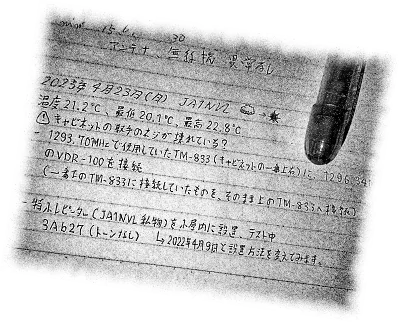 15. 30
アンテナ、無線機 異常なし
2023年4月23日(日) JA1NVL
温度21.2℃、最低20.1℃、最高22.8℃
キャビネットの取手のネジが揺れている?
- 1293.70MHzで使用していたTM-833(キャビネットの一番上右)に、1296.34
のVDR-100を接続
(一番上のTM-833に接続していたものを、そのまま上のTM-833へ接続)
- 特小レピーター(JA1NVL私物)を小局内に設置、テスト中
3A627(トーンなし) ↳2022年4月9日と設置方法を変えてみます。